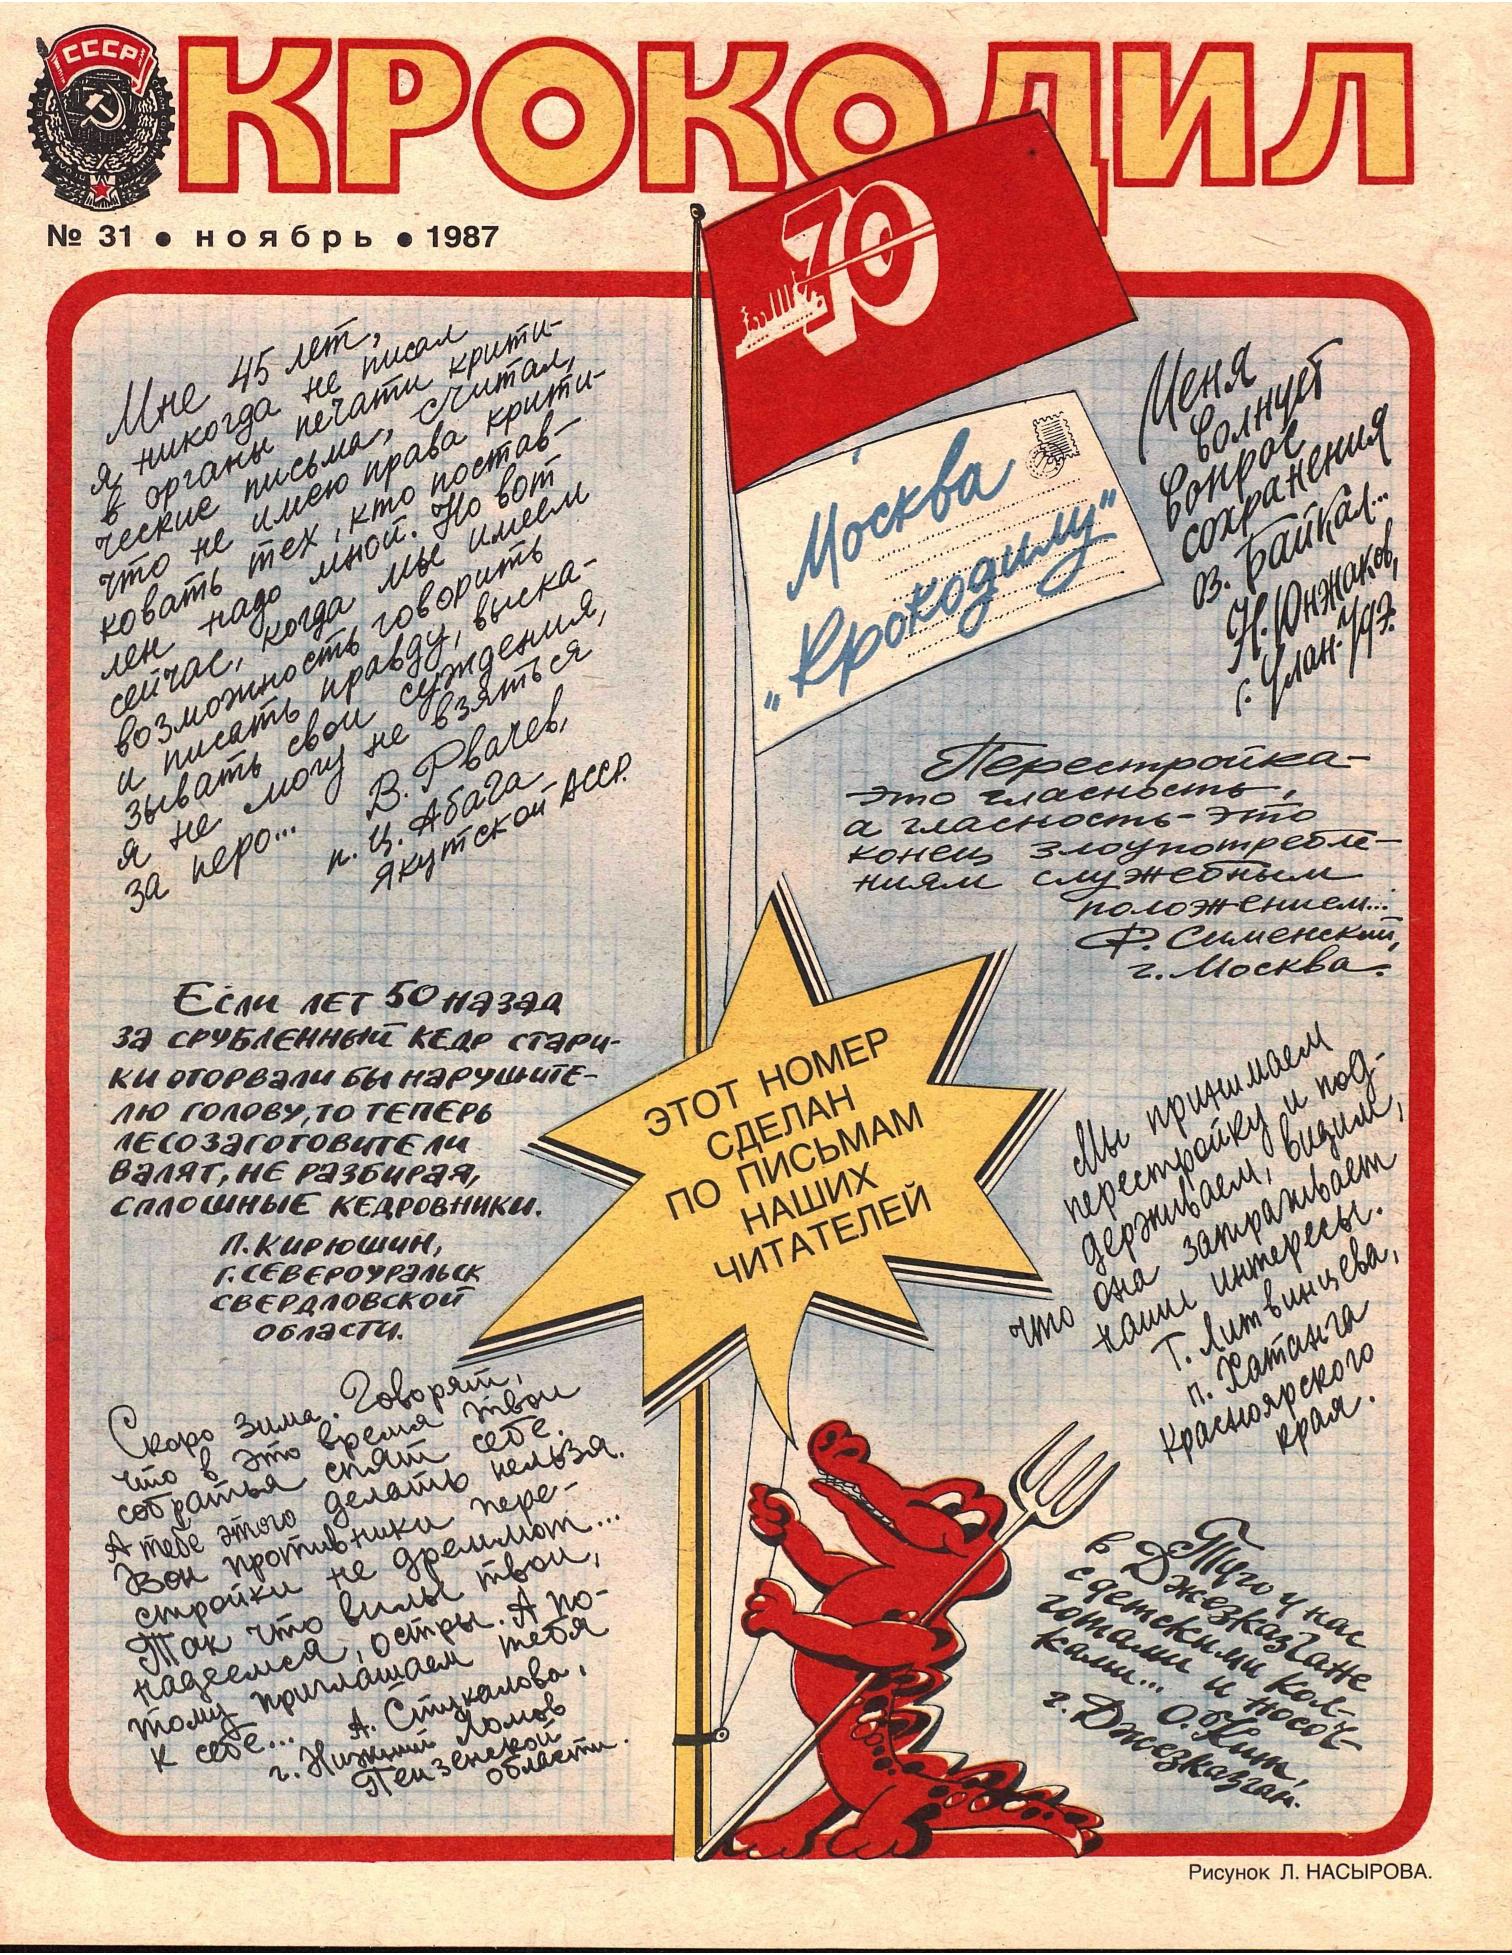 СССР
КРОКОДИЛ
№ 31 • ноябрь • 1987
70
Москва
„Крокодилу"
Мне 45 лет,
я никогда не писал
в органы печати крити-
ческие письма, считал,
что не имею права крити-
ковать тех, кто постав-
лен надо мной. Но вот
сейчас, когда мы имеем
возможность говорить
и писать правду, выска-
зывать свои суждения,
я не могу не взяться
за перо...
В. Рвачев,
п. Ц. Абага
Якутской АССР.
Если лет 50 назад
за срубленный кедр стари-
ки оторвали бы нарушите-
лю голову, то теперь
лесозаготовители
валят, не разбирая,
сплошные кедровники.
П. Кирюшин,
г. Североуральск
Свердловской
области.
Скоро зима. Говорят,
что в это время твои
собратья спят себе.
А тебе этого делать нельзя.
Вон противники пере-
стройки не дремлют...
Так что вилы твои,
надеемся, остры. А по-
тому приглашаем тебя
к себе...
А. Стукалова,
г. Нижний Ломов
Пензенской
области.
Меня
волнует
вопрос
сохранения
оз. Байкал...
Н. Юнжаков,
г. Улан-Удэ.
Перестройка-
это гласность,
а гласность - это
конец злоупотребле-
ниям служебным
положением...
Ф. Сименский,
г. Москва.
ЭТОТ НОМЕР
СДЕЛАН
ПО ПИСЬМАМ
НАШИХ
ЧИТАТЕЛЕЙ
Мы принимаем
перестройку и под-
держиваем, видим,
что она затрагивает
наши интересы.
Т. Литвинцева,
п. Хатанга
Красноярского
края.
Туго у нас
в Джезказгане
с детскими кол-
готами и носоч-
ками... О. Нит,
г. Джезказган.
Рисунок Л. НАСЫРОВА.